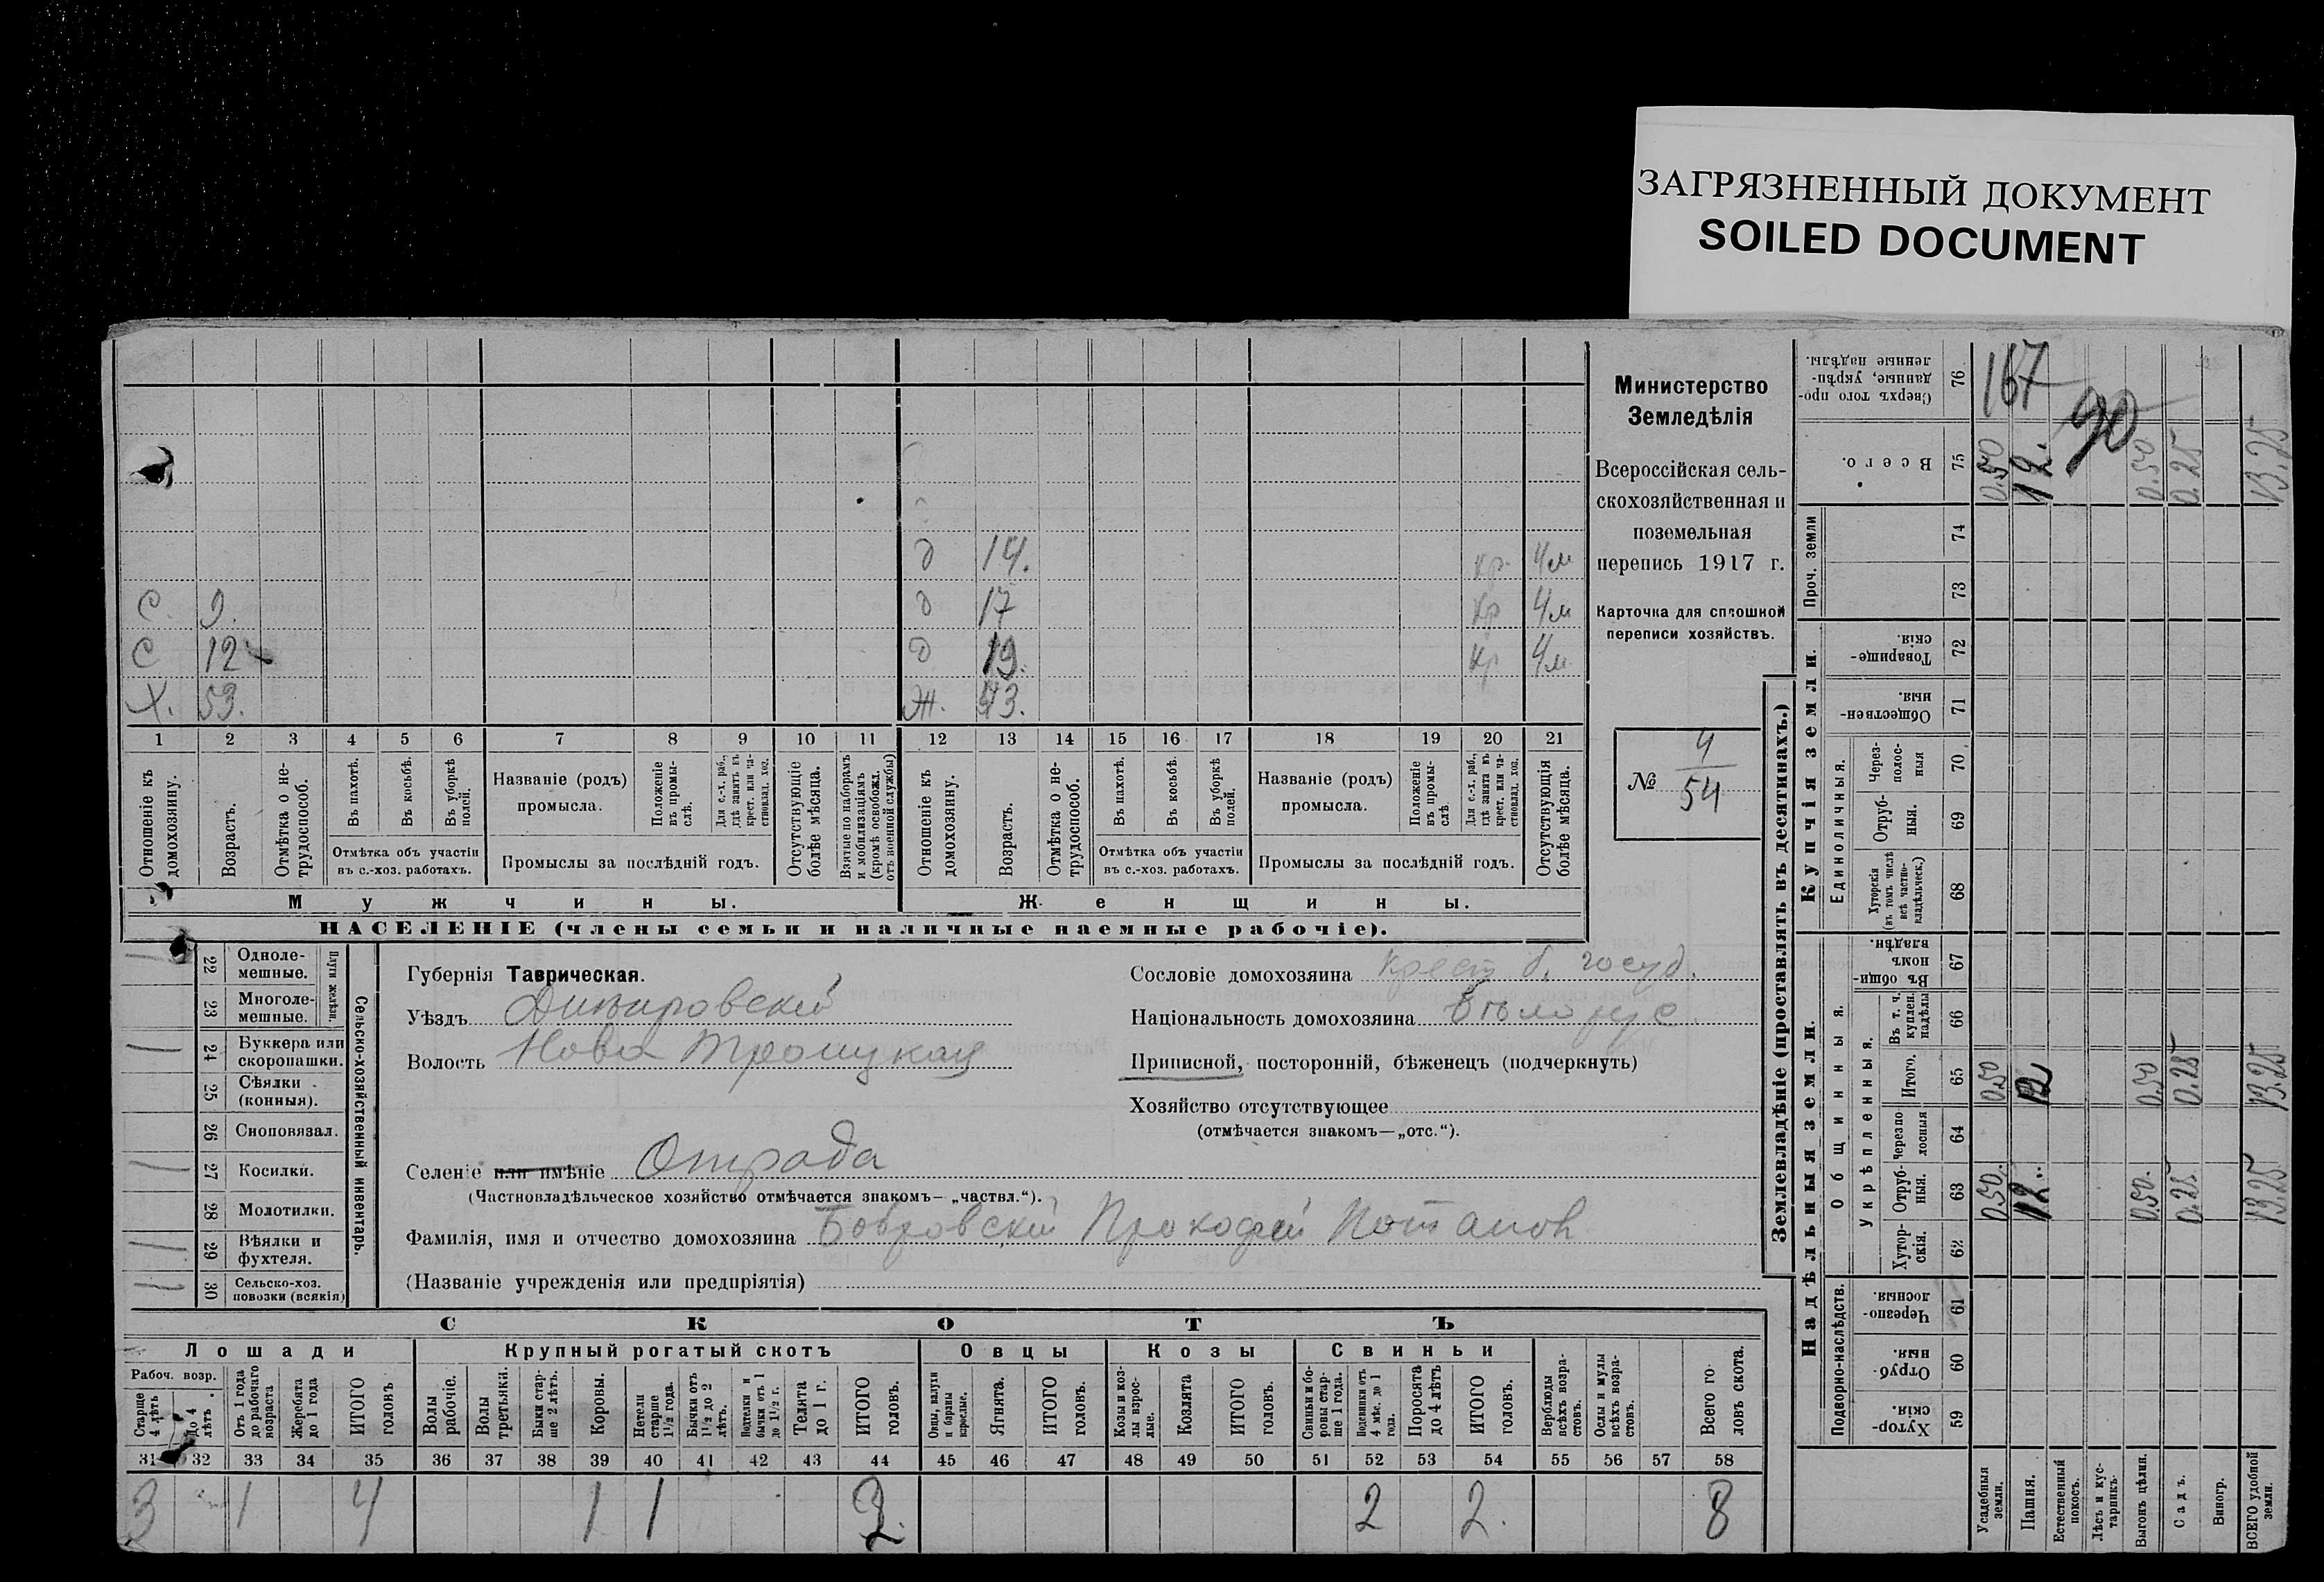 ЗАГРЯЗНЕННЫЙ ДОКУМЕНТ
SOILED DOCUMENT
Министерство
Земледѣлія
Всероссійская сель-
скохозяйственная и
поземельная
перепись 1917 г.
Карточка для сплошной
переписи хозяйствъ.
№ 4/54
д 14. кр. 4м
С. 9. д 17 кр 4м
С 12 д 19. кр 4м
Х. 53. Ж. 43.
1 2 3 4 5 6 7 8 9 10 11 12 13 14 15 16 17 18 19 20 21
Отношеніе къ домохозяину.
Возрастъ.
Отмѣтка о не-трудоспособ.
Въ пахотѣ.
Въ косьбѣ.
Въ уборкѣ полей.
Отмѣтка объ участіи
въ с.-хоз. работахъ.
Названіе (родъ)
промысла.
Положеніе въ промы-слѣ.
Для с.-х. раб., гдѣ занятъ въ крест. или ча-стновлад. хоз.
Промыслы за послѣдній годъ.
Отсутствующіе болѣе мѣсяца.
Взятые по наборамъ и мобилизаціямъ (кромѣ освобожл. отъ военной службы)
Отношеніе къ домохозяину.
Возрастъ.
Отмѣтка о не-трудоспособ.
Въ пахотѣ.
Въ косьбѣ.
Въ уборкѣ полей.
Отмѣтка объ участіи
въ с.-хоз. работахъ.
Названіе (родъ)
промысла.
Положеніе въ промы-слѣ.
Для с.-х. раб., гдѣ занята въ крест. или ча-стновлад. хоз.
Промыслы за послѣдній годъ.
Отсутствующія болѣе мѣсяца.
Мужчины. Женщины.
НАСЕЛЕНІЕ (члены семьи и наличные наемные рабочіе).
Сельско-хозяйственный инвентарь.
Плуги желѣзн.
1 22 Одноле-мешные.
23 Многоле-мешные.
1 24 Буккера или скоропашки.
25 Сѣялки (конныя).
26 Сноповязал.
1 27 Косилки.
28 Молотилки.
1 29 Вѣялки и фухтеля.
1 30 Сельско-хоз. повозки (всякія)
Губернія Таврическая.
Уѣздъ Днѣпровскій
Волость Ново Троицкая
Селеніе или имѣніе Отрада
(Частновладѣльческое хозяйство отмѣчается знакомъ— „частвл.“).
Фамилія, имя и отчество домохозяина Бобровскій Прокофій Потапов
(Названіе учрежденія или предпріятія)
Сословіе домохозяина крест б. госуд.
Національность домохозяина бѣлорус.
Приписной, посторонній, бѣженецъ (подчеркнуть)
Хозяйство отсутствующее
(отмѣчается знакомъ—„отс.“).
СКОТЪ
Лошади Крупный рогатый скотъ Овцы Козы Свиньи
Рабоч. возр.
Старше 4 лѣтъ
До 4 лѣтъ
Отъ 1 года до рабочаго возраста
Жеребята до 1 года
ИТОГО головъ
Волы рабочіе.
Волы третьяки.
Быки стар-ше 2 лѣтъ.
Коровы.
Нетели старше 1½ года.
Бычки отъ 1½ до 2 лѣтъ.
Подтелки и бычки отъ 1 до 1½ г.
Телята до 1 г.
ИТОГО головъ.
Овцы, валухи и бараны взрослые.
Ягнята.
ИТОГО головъ.
Козы и коз-лы взрос-лые.
Козлята
ИТОГО головъ.
Свиньи и бо-ровы стар-ше 1 года.
Подсвинки отъ 4 мѣс. до 1 года.
Поросята до 4 лѣтъ
ИТОГО головъ.
Верблюды всѣхъ возра-стовъ.
Ослы и мулы всѣхъ возра-стовъ.
Всего го-ловъ скота.
31 32 33 34 35 36 37 38 39 40 41 42 43 44 45 46 47 48 49 50 51 52 53 54 55 56 57 58
3 1 4 1 1 2. 2 2. 8
Землевладѣніе (проставлять въ десятинахъ.)
Надѣльныя земли. Купчія земли. Проч. земли
Подворно-наслѣдств. Общинныя. Единоличныя.
Укрѣпленныя.
Хутор-скія. 59
Отруб-ныя. 60
Черезпо-лосныя. 61
Хутор-скія. 62
Отруб-ныя. 63
Черезпо-лосныя 64
Итого. 65
Въ т. ч. куплен. надѣлы 66
Въ общин-номъ владѣн. 67
Хуторскія (въ томъ числѣ всѣ частно-владѣльческ.) 68
Отруб-ныя. 69
Через-полос-ныя 70
Обществен-ныя. 71
Товарище-скія. 72
73
74
Всего. 75
Сверхъ того про-данные, укрѣп-ленные надѣлы. 76
Усадебныя земли. 0.50. 0.50 0.50 167
Пашня. 12. 12 12.
Естественный покосъ. 90
Лѣсъ и кус-тарникъ.
Выгонъ цѣлин. 0.50. 0.50 0.50
Садъ. 0.25 0.25 0.25
Виногр.
ВСЕГО удобной земли. 13.25 13.25 13.25